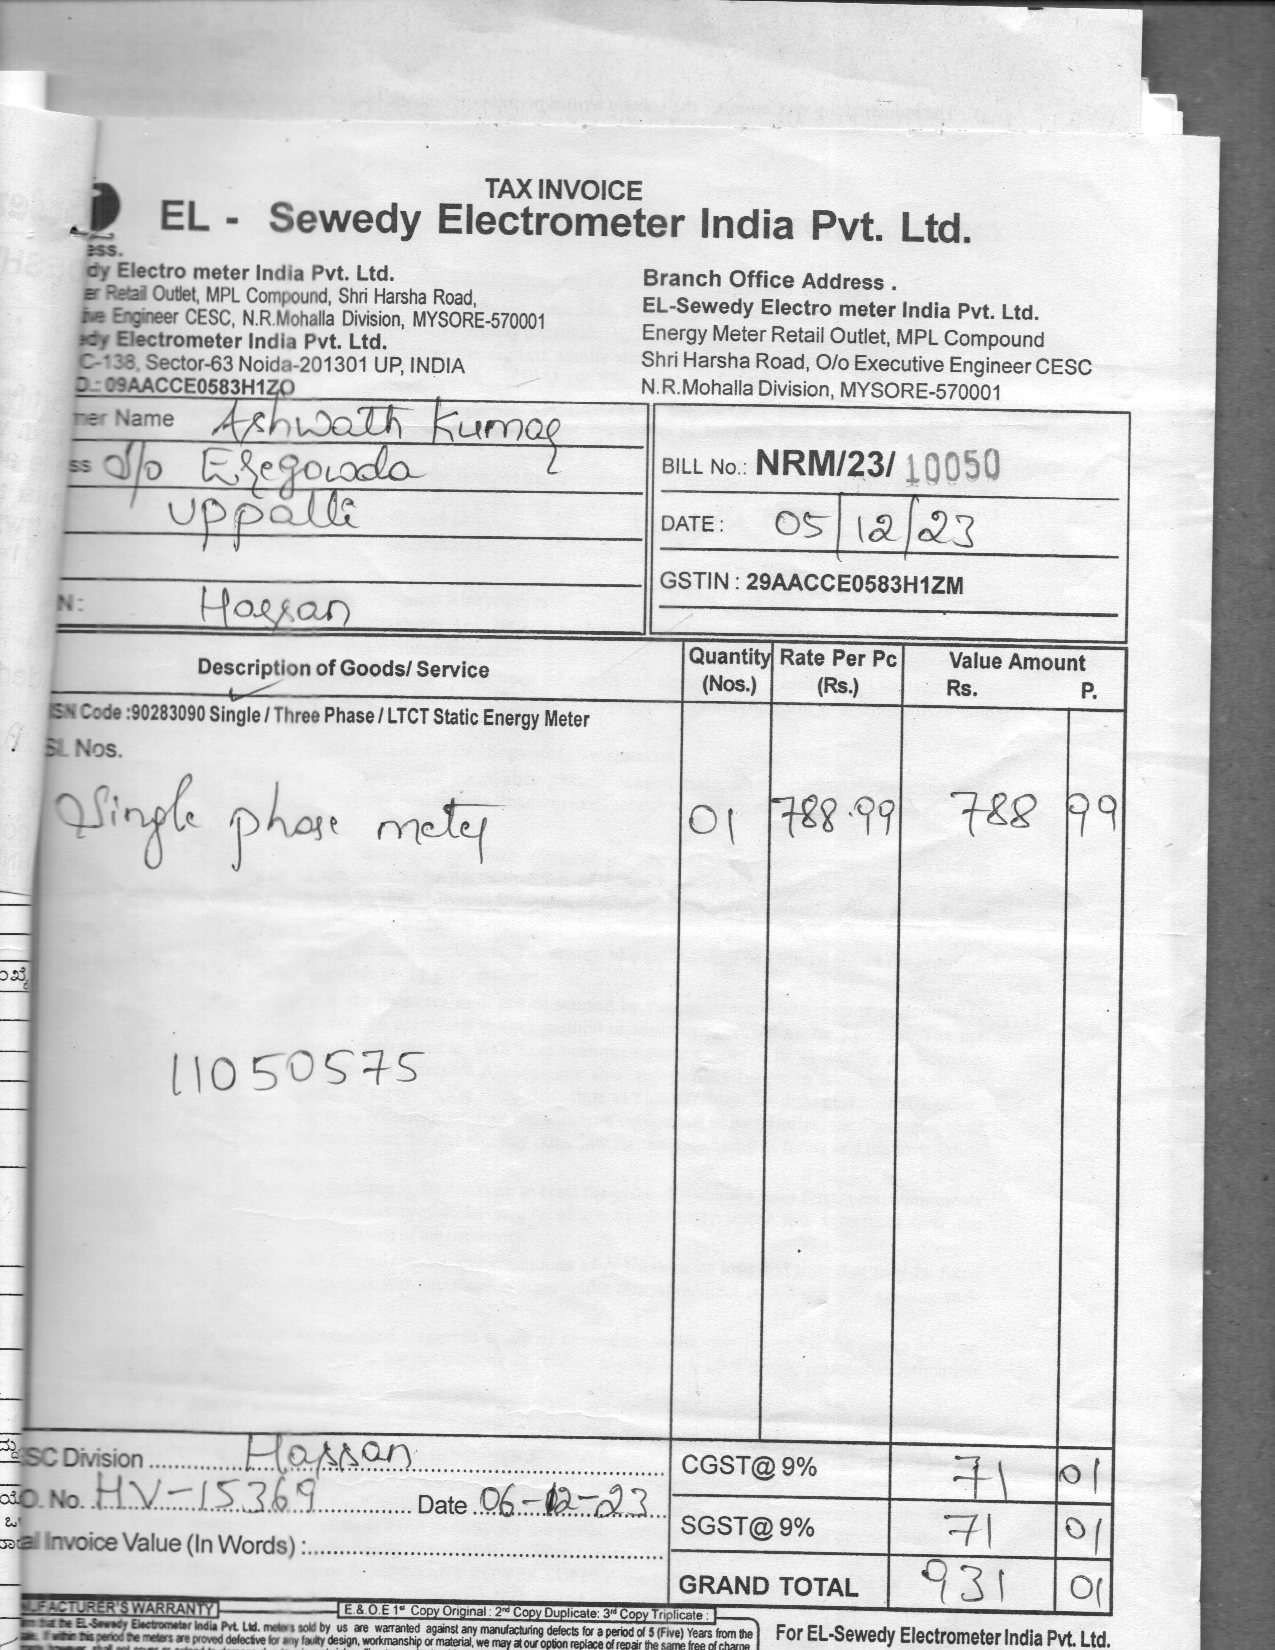 TAX INVOICE
EL - Sewedy Electrometer India Pvt. Ltd.
ess.
dy Electro meter India Pvt. Ltd.
er Retail Outlet, MPL Compound, Shri Harsha Road,
ive Engineer CESC, N.R.Mohalla Division, MYSORE-570001
edy Electrometer India Pvt. Ltd.
C-138, Sector-63 Noida-201301 UP, INDIA
D.: 09AACCE0583H1ZO
Branch Office Address .
EL-Sewedy Electro meter India Pvt. Ltd.
Energy Meter Retail Outlet, MPL Compound
Shri Harsha Road, O/o Executive Engineer CESC
N.R.Mohalla Division, MYSORE-570001
mer Name Ashwath Kumar
ss S/o Eregowda
Uppalli
N: Hassan
BILL No.: NRM/23/ 10050
DATE: 05/12/23
GSTIN : 29AACCE0583H1ZM
Description of Goods/ Service Quantity (Nos.) Rate Per Pc (Rs.) Value Amount Rs. P.
SN Code :90283090 Single / Three Phase / LTCT Static Energy Meter
Sl. Nos.
Single phase meter 01 788.99 788 99
11050575
SC Division Hassan
O. No. HV-15369 Date 06-12-23
al Invoice Value (In Words) :
CGST@ 9% 71 01
SGST@ 9% 71 01
GRAND TOTAL 931 01
NUFACTURER'S WARRANTY
E.& O.E 1st Copy Original : 2nd Copy Duplicate: 3rd Copy Triplicate :
that the EL-Sewedy Electrometer India Pvt. Ltd. meters sold by us are warranted against any manufacturing defects for a period of 5 (Five) Years from the
If within this period the meters are proved defective for any faulty design, workmanship or material, we may at our option replace of repair the same free of charge
For EL-Sewedy Electrometer India Pvt. Ltd.